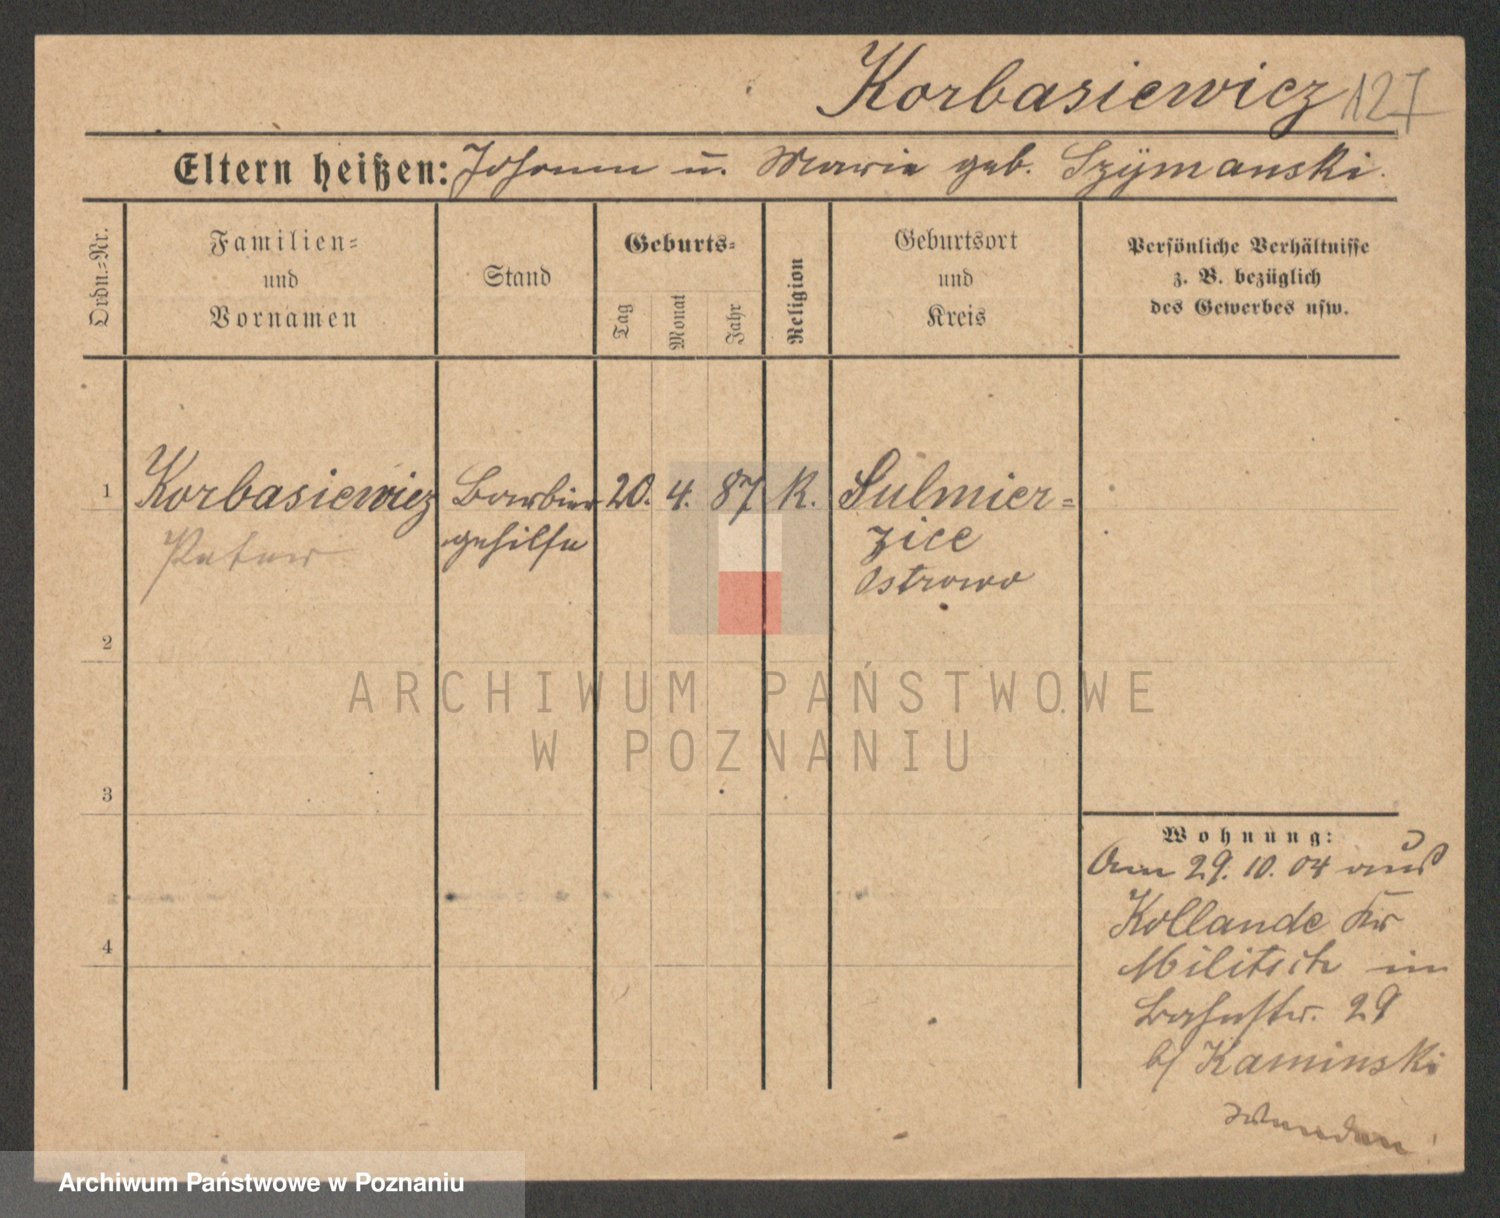 Korbasiewicz 127
Eltern heißen: Johann u. Marie geb. Szymanski.
Ordn.-Nr.
Familien-
und
Vornamen
Stand
Geburts-
Tag
Monat
Jahr
Religion
Geburtsort
und
Kreis
Persönliche Verhältnisse
z. B. bezüglich
des Gewerbes usw.
1 Korbasiewicz Barbier 20. 4. 87 K. Sulmier=
Peter gehilfe zice
Ostrowo
2
3
4
Wohnung:
Am 29. 10. 04 aus
Kollande Kr
Militsch in
Bahnstr. 29
b/ Kaminski
ARCHIWUM PAŃSTWOWE
W POZNANIU
Archiwum Państwowe w Poznaniu